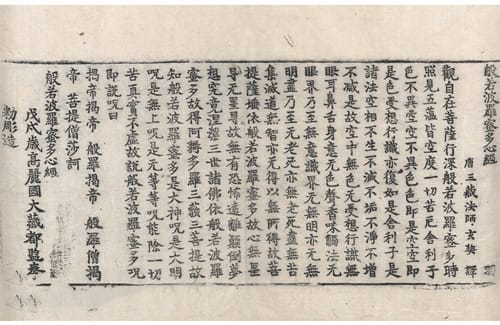 般若波羅蜜多心經　羽
唐三藏法師玄奘譯
觀自在菩薩行深般若波羅蜜多時
照見五蘊皆空度一切苦厄舍利子
色不異空空不異色色即是空空即
是色受想行識亦復如是舍利子是
諸法空相不生不滅不垢不淨不增
不減是故空中无色无受想行識无
眼耳鼻舌身意无色聲香味觸法无
眼界乃至无意識界无無明亦无無
明盡乃至无老死亦无老死盡无苦
集滅道无智亦无得以无所得故菩
提薩埵依般若波羅蜜多故心无罣
导无罣导故无有恐怖遠離顛倒夢
想究竟涅槃三世諸佛依般若波羅
蜜多故得阿耨多羅三藐三菩提故
知般若波羅蜜多是大神呪是大明
呪是無上呪是无等等呪能除一切
苦真實不虛故說般若波羅蜜多呪
即說呪曰
揭帝揭帝　般羅揭帝　般羅僧揭
帝　菩提僧莎訶
般若波羅蜜多心經
戊戌歲高麗國大藏都監奉
勅彫造